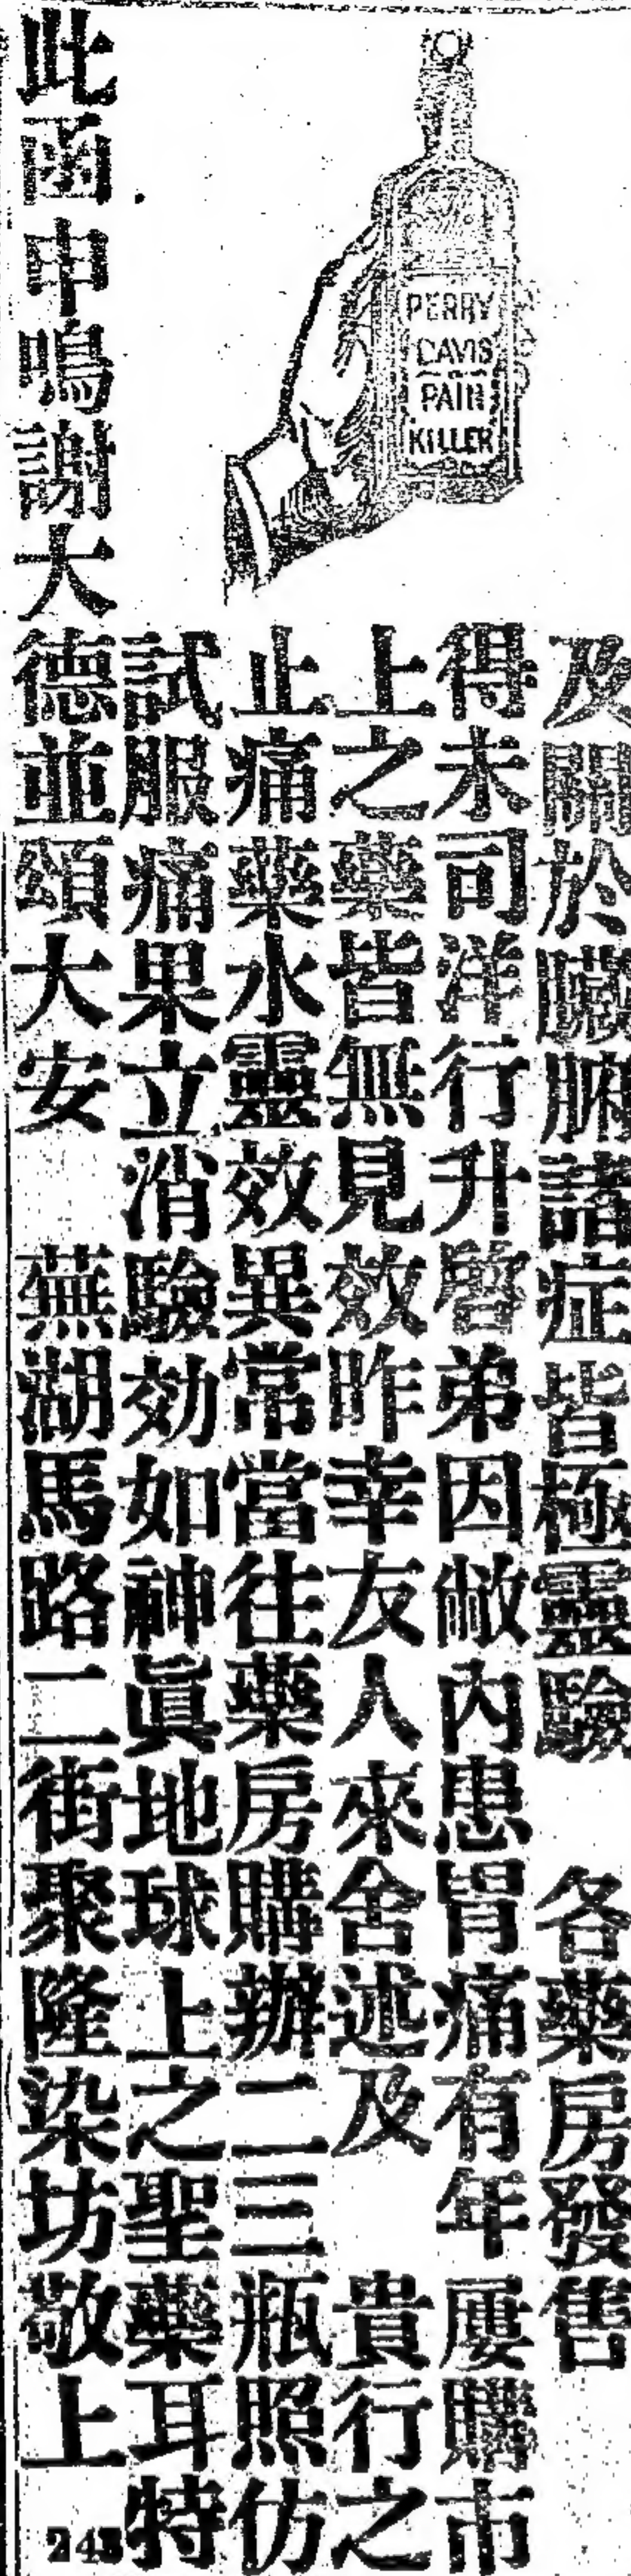 PERRY
DAVIS
PAIN
KILLER
及關於臟腑諸症皆極靈驗　各藥房發售
得未司洋行升啓弟因敝內患胃痛有年屢購市
上之藥皆無見效昨幸友人來舍述及　貴行之
止痛藥水靈效異常當往藥房購辦二三瓶照仿
試服痛果立消驗効如神眞地球上之聖藥耳特
此函申鳴謝大德並頌大安　蕪湖馬路二街聚隆染坊敬上
243